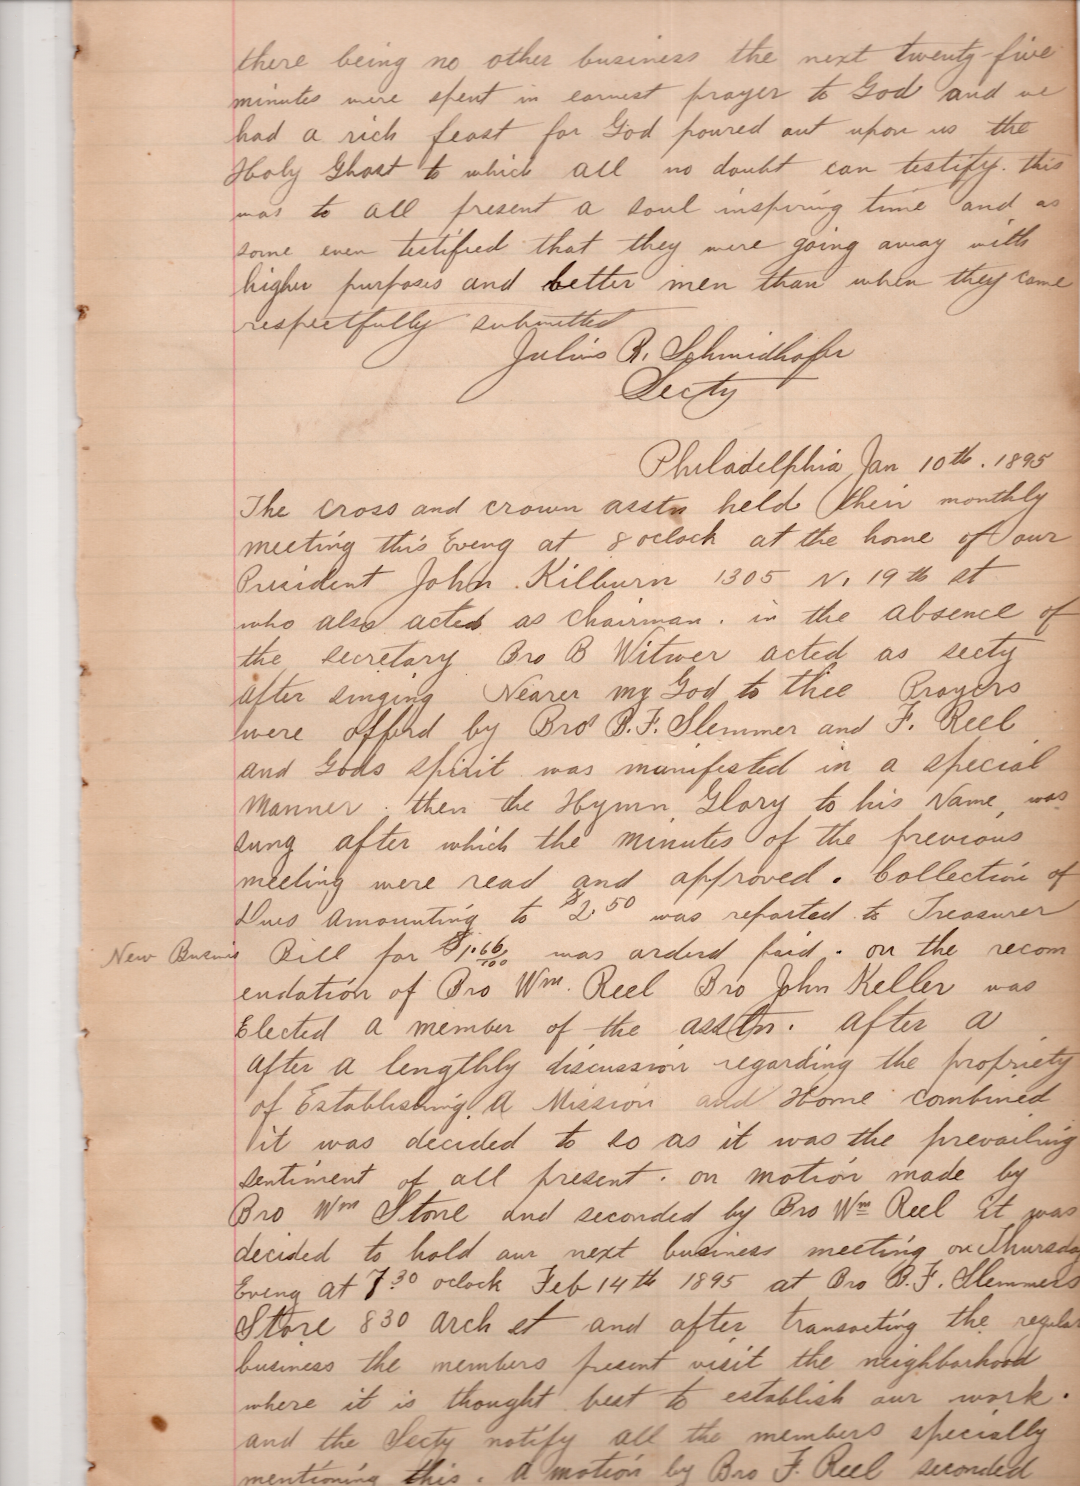 there being no other business the next twenty-five
minutes were spent in earnest prayer to God and we
had a rich feast for God poured out upon us the
Holy Ghost to which all no doubt can testify. this
was to all present a soul inspiring time and as
some even testified that they were going away with
higher purposes and better men than when they came
respectfully submitted
Julius R. Schmidhofer
Secty
Philadelphia Jan 10th. 1895
The cross and crown asstn held their monthly
meeting this Eveng at 8 oclock at the home of our
President John Kilburn 1305 N. 19th st
who also acted as chairman. in the absence of
the secretary Bro B Witwer acted as secty
after singing Nearer my God to thee Prayers
were offerd by Bros B.F. Slemmer and F. Reel
and Gods spirit was manifested in a special
manner. then the Hymn Glory to his Name was
sung after which the minutes of the previous
meeting were read and approved. Collection of
Dues amounting to $2.50 was reported to Treasurer
New Busines Bill for $1.66/100 was orderd paid. on the recom
endation of Bro Wm. Reel Bro John Keller was
Elected a member of the asstn. after a
after a lengthly discussion regarding the propriety
of Establishing a Mission and Home combined
it was decided to so as it was the prevailing
sentiment of all present. on motion made by
Bro Wm Stone and seconded by Bro Wm Reel it was
decided to hold our next business meeting on Thursday
Eveng at 7 30 oclock Feb 14th 1895 at Bro B.F. Slemmers
Store 830 arch st and after transacting the regular
business the members present visit the neighborhood
where it is thought best to establish our work.
and the Secty notify all the members specially
mentioning this. a motion by Bro F. Reel seconded